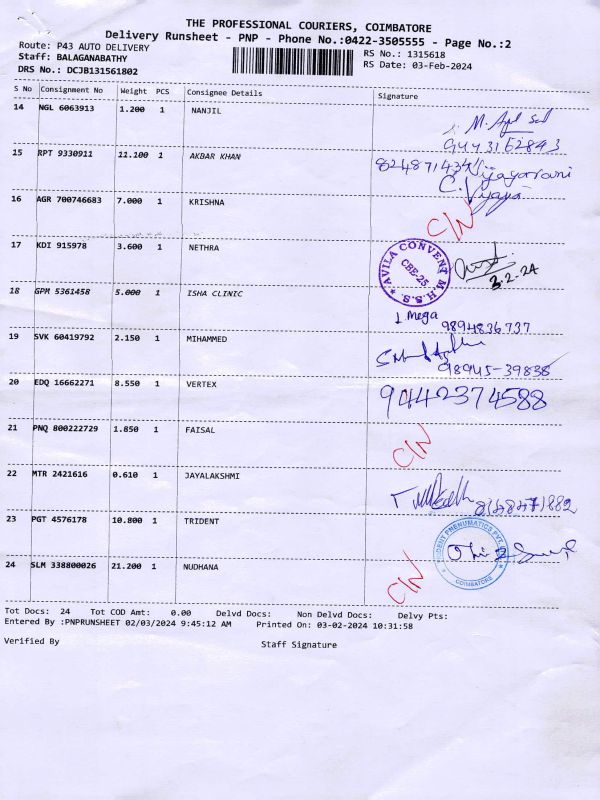 THE PROFESSIONAL COURIERS, COIMBATORE
Delivery Runsheet - PNP - Phone No.:0422-3505555 - Page No.:2
Route: P43 AUTO DELIVERY RS No.: 1315618
Staff: BALAGANABATHY RS Date: 03-Feb-2024
DRS No.: DCJB131561802
S No Consignment No Weight PCS Consignee Details Signature
14 NGL 6063913 1.200 1 NANJIL
9443152843
15 RPT 9330911 11.100 1 AKBAR KHAN
8248714347 Vijayarani
C. Vijaya
16 AGR 700746683 7.000 1 KRISHNA C/N
17 KDI 915978 3.600 1 NETHRA AVILA CONVENT M.H.S.S. CBE-25
3-2-24
18 GPM 5361458 5.000 1 ISHA CLINIC
Mega 9894836737
19 SVK 60419792 2.150 1 MIHAMMED
98945-39838
20 EDQ 16662271 8.550 1 VERTEX 9442374588
21 PNQ 800222729 1.850 1 FAISAL C/N
22 MTR 2421616 0.610 1 JAYALAKSHMI
23 PGT 4576178 10.800 1 TRIDENT
TRIDENT PNEUMATICS PVT. COIMBATORE
24 SLM 338800026 21.200 1 NUDHANA C/N
Tot Docs: 24 Tot COD Amt: 0.00 Delvd Docs: Non Delvd Docs: Delvy Pts:
Entered By :PNPRUNSHEET 02/03/2024 9:45:12 AM Printed On: 03-02-2024 10:31:58
Verified By Staff Signature